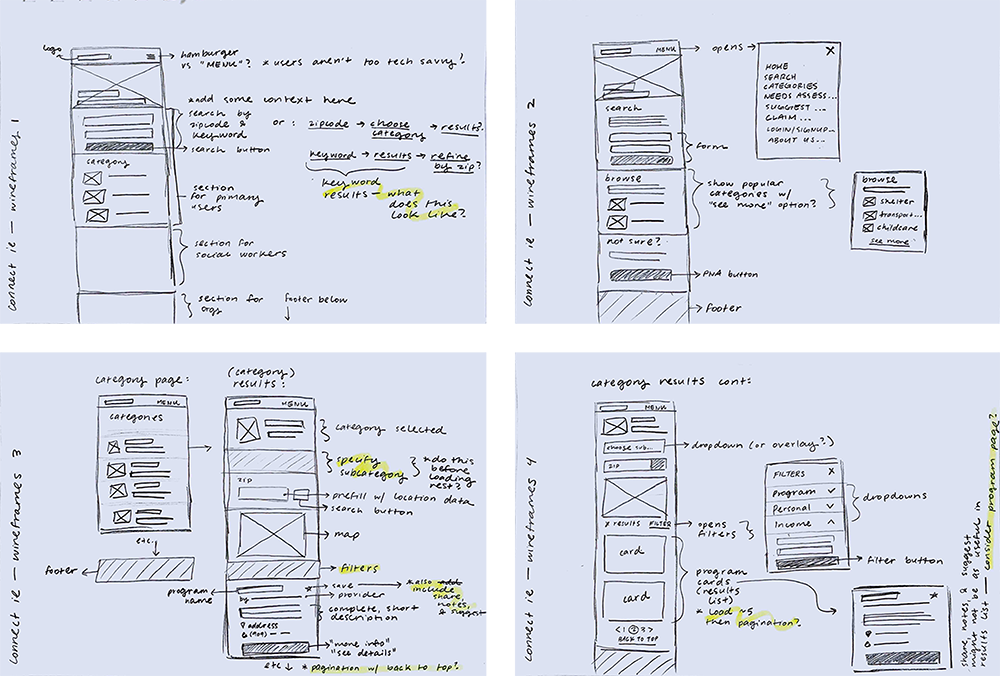 connect ie — wireframes 1
logo
hamburger
vs "MENU"? * users aren't too tech savvy?
* add some context here
search by
zipcode &
keyword
or: zipcode → choose category → results?
search button
keyword → results → refine by zip?
category
keyword
results — what
does this
look like?
section
for primary
users
section for
social workers
section for
orgs
footer below
connect ie — wireframes 2
MENU
opens
X
HOME
SEARCH
CATEGORIES
NEEDS ASSESS...
SUGGEST ...
CLAIM ...
LOGIN/SIGNUP...
ABOUT US...
search
form
browse
show popular
categories w/
"see more" option?
browse
shelter
transport...
childcare
see more
not sure?
PNA button
footer
connect ie — wireframes 3
category page:
MENU
categories
etc.
footer
(category)
results:
MENU
category selected
specify
subcategory
* do this
before
loading
rest?
zip
prefill w/ location data
search button
map
filters
program
name
save
* also add
include
share,
notes,
& suggest
by
provider
complete, short
description
address
(909)
"more info"
"see details"
etc * pagination w/ back to top?
connect ie — wireframes 4
category results cont:
MENU
choose sub...
dropdown (or overlay?)
zip
x results FILTER
opens
filters
FILTERS X
Program
Personal
Income
dropdowns
filter button
card
card
program
cards
(results
list)
* Load ~5
then pagination?
< 1 2 3 >
BACK TO TOP
share, notes, & suggest
might not be as useful in
results list — consider program page?